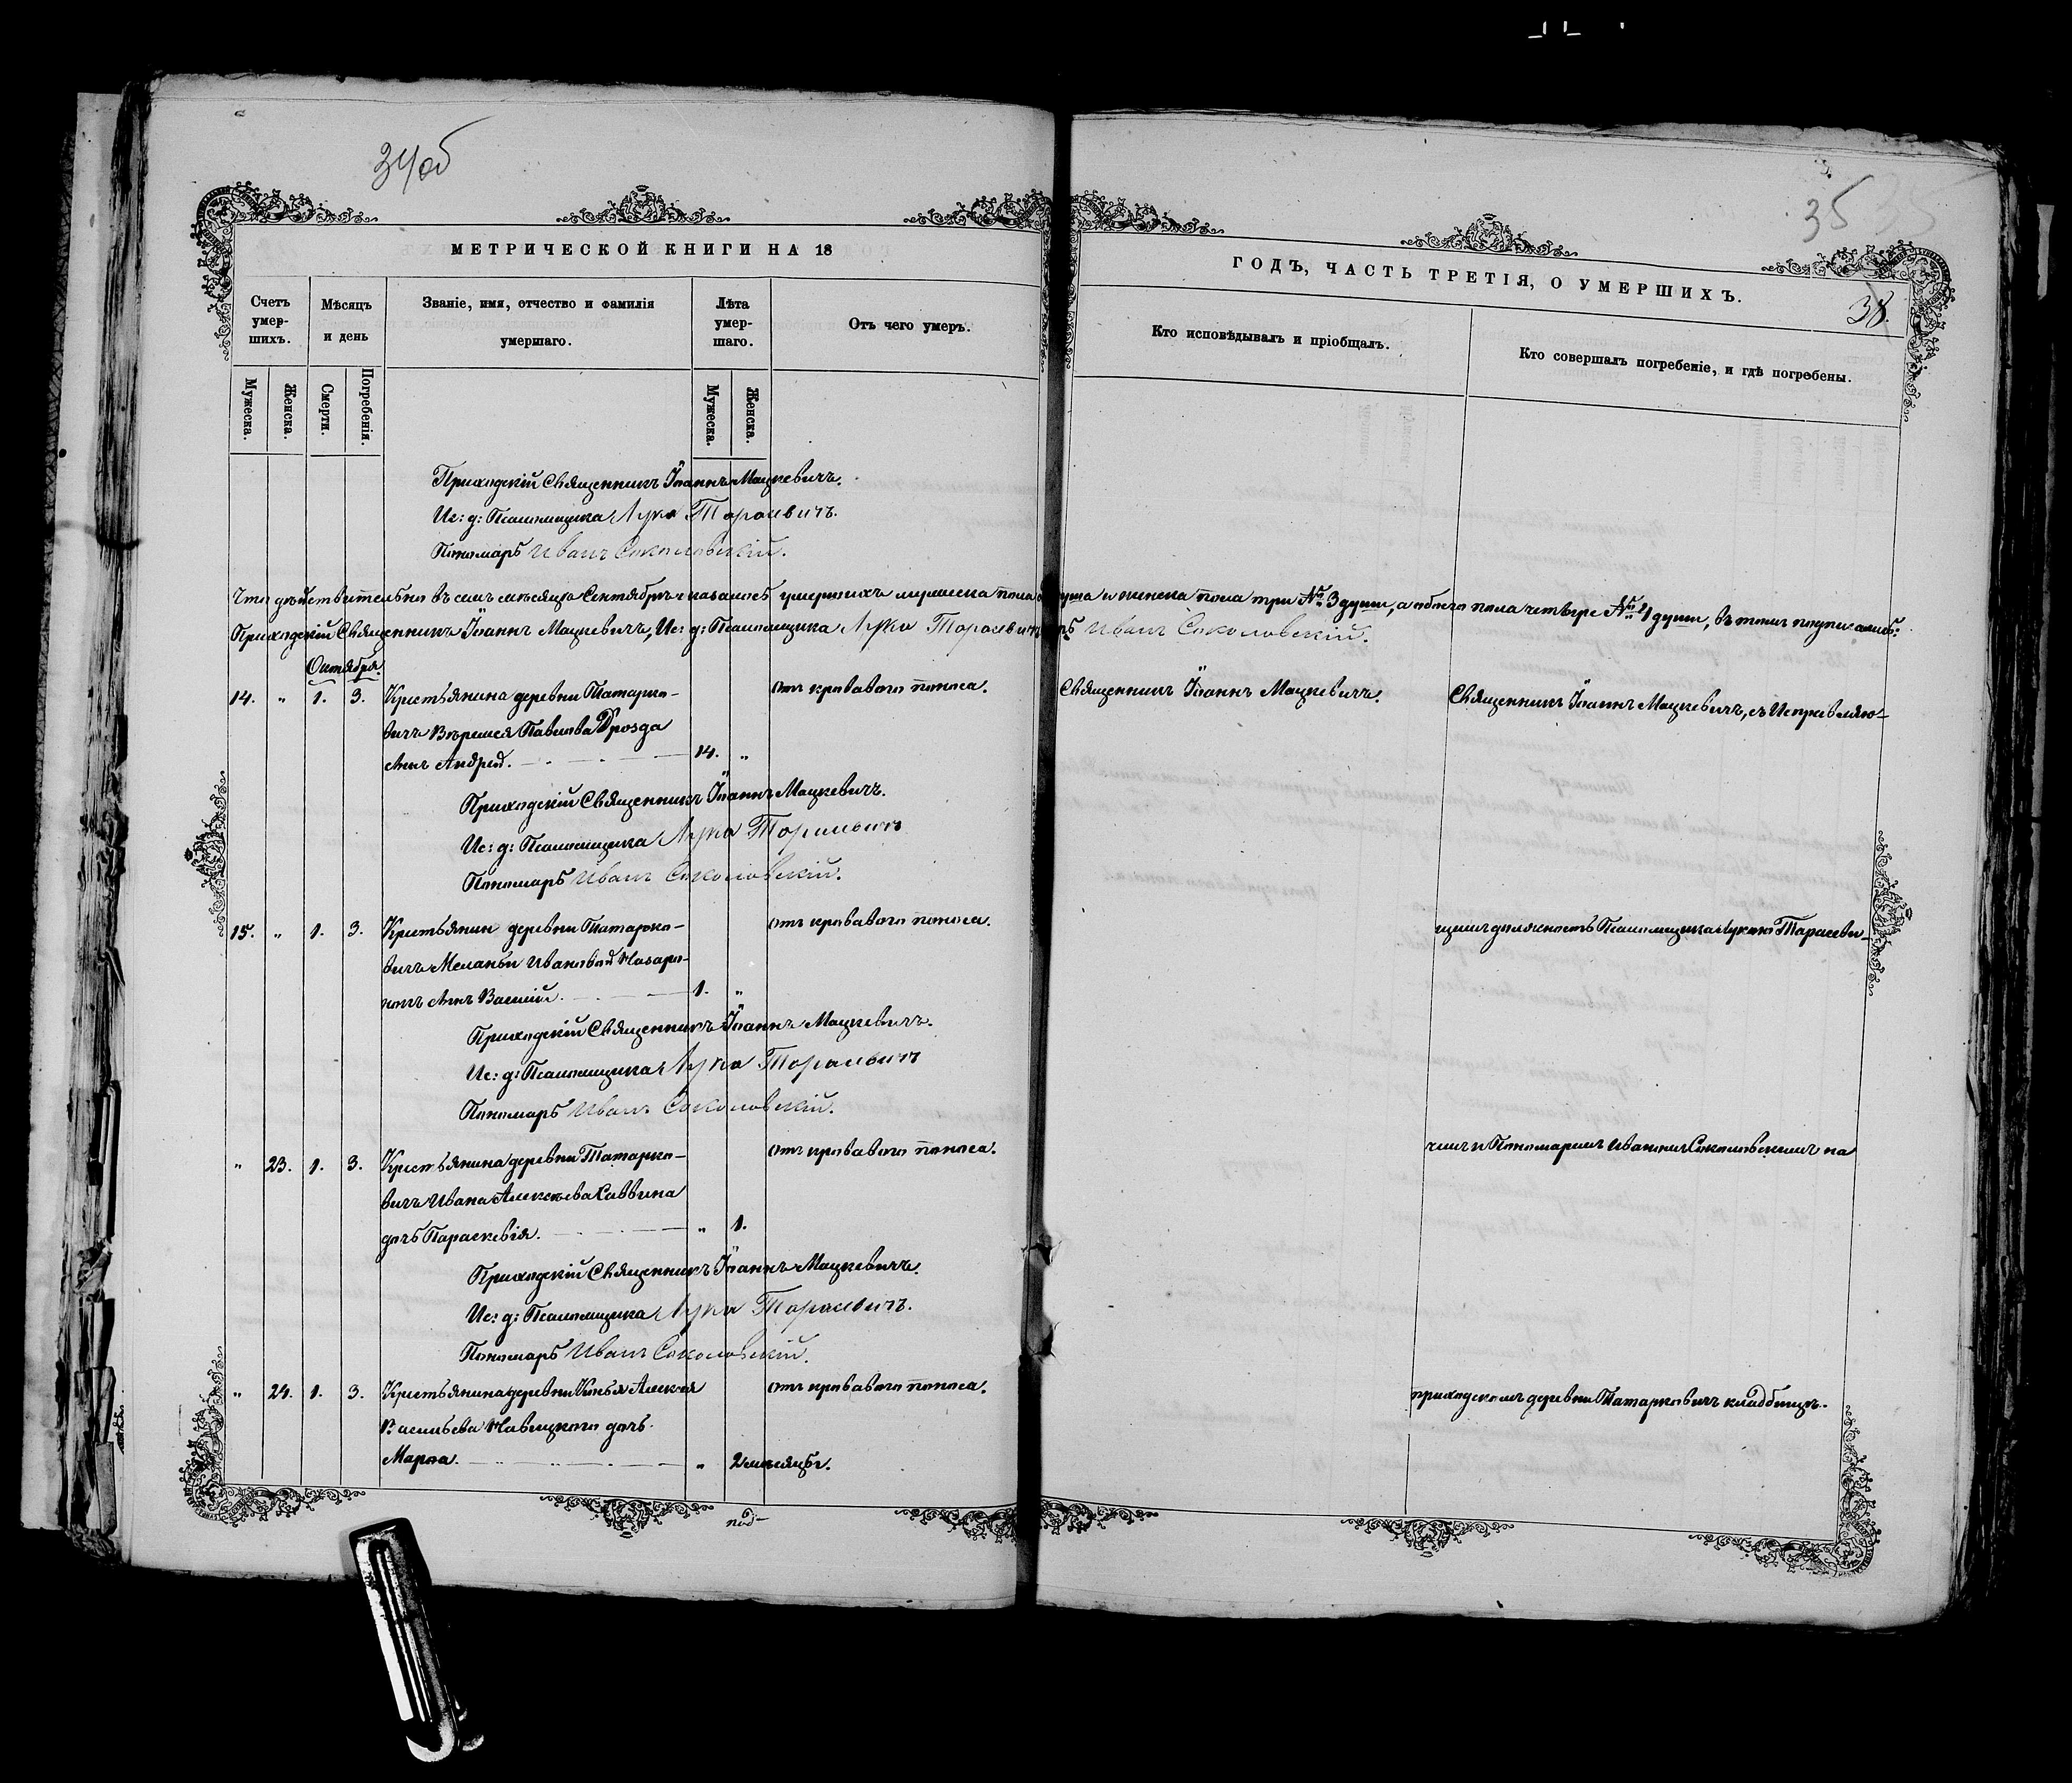 34об
35
МЕТРИЧЕСКОЙ КНИГИ НА 18
ГОДЪ, ЧАСТЬ ТРЕТІЯ, О УМЕРШИХЪ.
38.
Счетъ умер-шихъ.
Мѣсяцъ и день
Званіе, имя, отчество и фамилія умершаго.
Лѣта умер-шаго.
Отъ чего умеръ.
Кто исповѣдывалъ и пріобщалъ.
Кто совершалъ погребеніе, и гдѣ погребены.
Мужеска.
Женска.
Смерти.
Погребенія.
Мужеска.
Женска.
Приходскій Священникъ Іоаннъ Мацкевичъ.
Ис: д: Псаломщика Лука Тарасевичъ.
Пономарь Иванъ Соколовскій.
Что дѣйствительно въ семъ мѣсяцѣ Сентябрѣ показаное умершихъ мужеска пола душа и женска пола три № 3 души, а обоего пола четыре № 4 души, въ томъ подписались:
Приходскій Священникъ Іоаннъ Мацкевичъ, Ис: д: Псаломщика Лука Тарасевичъ Иванъ Соколовскій.
Октября.
14. „ 1. 3. Крестьянина деревни Татарко- Отъ кроваваго поноса. Священникъ Іоаннъ Мацкевичъ. Священникъ Іоаннъ Мацкевичъ, съ Исправляю-
вичъ Павлова Дрозда
сынъ Андрей. 14. „
Приходскій Священникъ Іоаннъ Мацкевичъ.
Ис: д: Псаломщика Лука Тарасевичъ
Пономарь Иванъ Соколовскій.
15. „ 1. 3. Крестьянин деревни Татарко- Отъ кроваваго поноса. щимъ должность Псаломщика Лукою Тарасеви-
вичъ Меланьи Ивановой Назаро-
сынъ Василій. 1. „
Приходскій Священникъ Іоаннъ Мацкевичъ.
Ис: д: Псаломщика Лука Тарасевичъ
Пономарь Иванъ Соколовскій.
„ 23. 1. 3. Крестьянина деревни Татарко- Отъ кроваваго поноса. чемъ и Пономаремъ Иваномъ Соколовскимъ на
вичъ Ивана Алексѣева Саввина
дочь Параскевія. „ 1.
Приходскій Священникъ Іоаннъ Мацкевичъ.
Ис: д: Псаломщика Лука Тарасевичъ.
Пономарь Иванъ Соколовскій.
„ 24. 1. 3. Крестьянина деревни Алексѣя Отъ кроваваго поноса. приходскомъ деревни Татарковичъ кладбищѣ.
Васильева Навицкаго дочь
Марѳа. „ 2 мѣсяцевъ.
под-